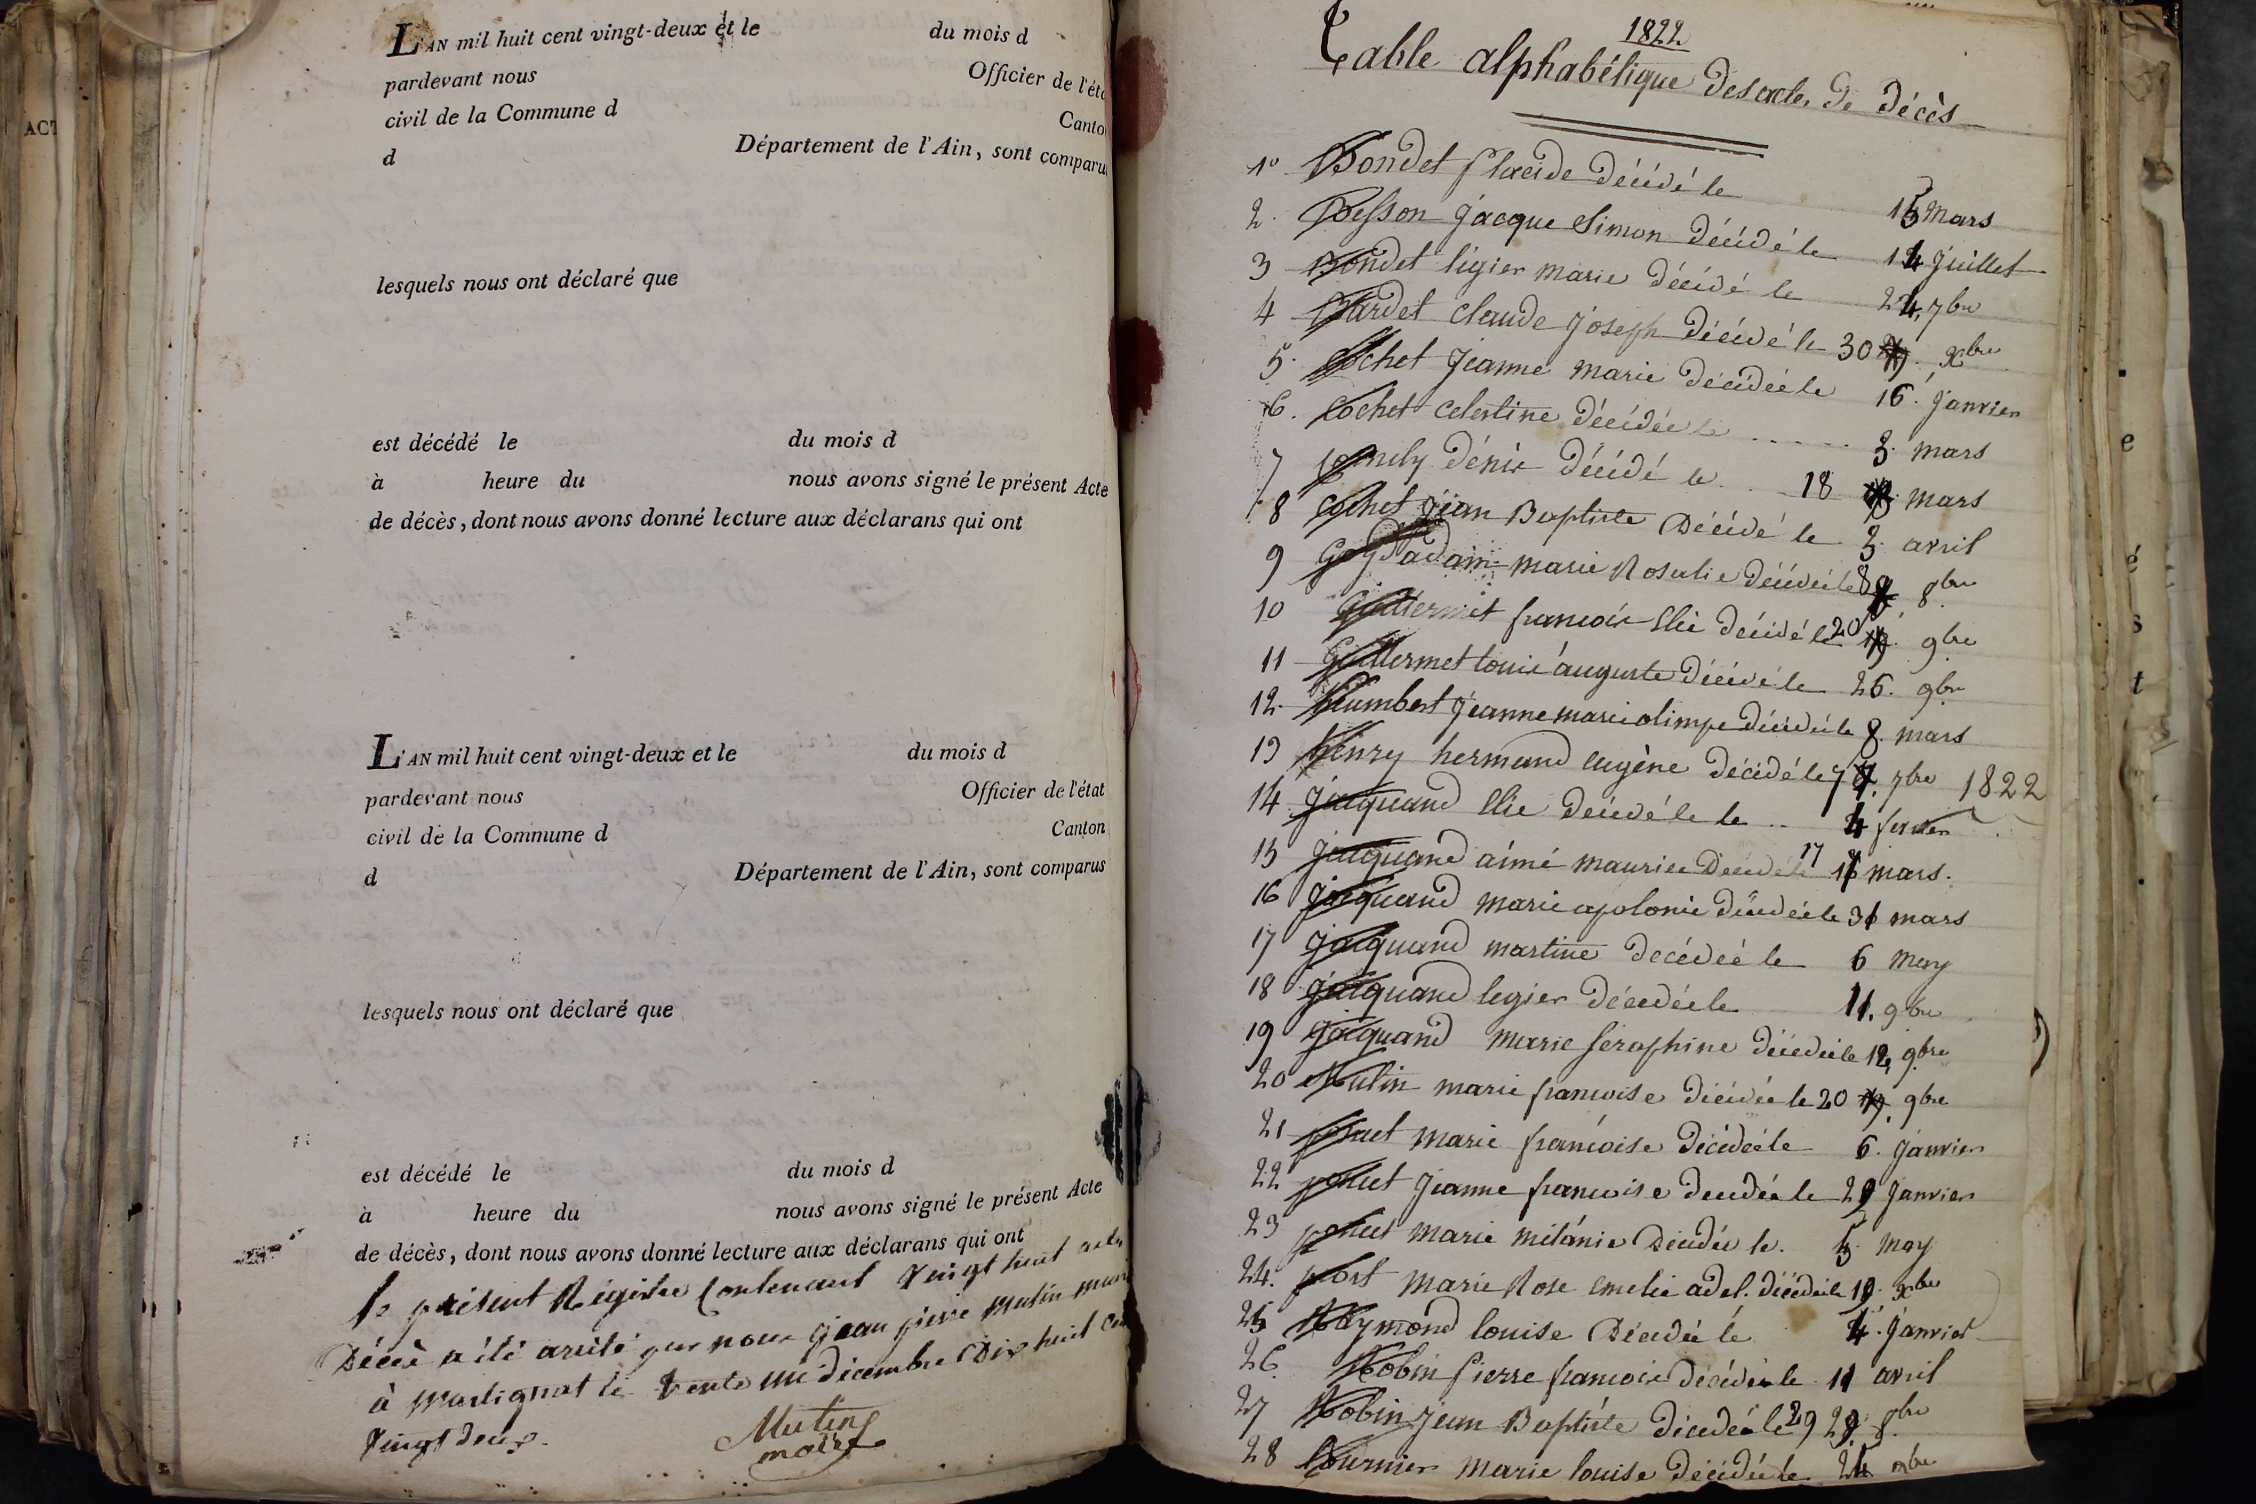 ACT
L'AN mil huit cent vingt-deux et le du mois d
pardevant nous Officier de l'éta
civil de la Commune d Canto
d Département de l'Ain, sont comparu
lesquels nous ont déclaré que
est décédé le du mois d
à heure du nous avons signé le présent Acte
de décès, dont nous avons donné lecture aux déclarans qui ont
L'AN mil huit cent vingt-deux et le du mois d
pardevant nous Officier de l'état
civil de la Commune d Canton
d Département de l'Ain, sont comparus
lesquels nous ont déclaré que
est décédé le du mois d
à heure du nous avons signé le présent Acte
de décès, dont nous avons donné lecture aux déclarans qui ont
le présent Régistre Contenant vingt huit acte
Décès a été arrêté par nous jean pierre Mutin
à Martignat le trente un décembre Dix huit
vingt deux.
Mutin
maire
1822
Table alphabétique des actes de décès
1° Bondet Placide décédé le 15 mars
2. Besson jacque Simon décédé le 14 juillet
3 Bondet légier marie décédé le 24 7bre
4 Bardet Claude joseph décédé le 30 xbre
5. Cochet jeanne marie décédée le 16 janvier
6. Cochet celestine décédée le 3. mars
7 dénis décédé le 18 mars
8 Cochet jean Baptiste décédé le 3 avril
9 marie Rosalie décédée le 8 8bre
10 Guillermet françois Elie décédé le 20 9bre
11 Guillermet louis auguste décédé le 26. 9bre
12. humbert jeanne marie olimpe décédée le 8. mars
13 henry hermand eugène décédé le 7 7bre 1822
14 jacquand Elie décédé le le 4 fevrier
15 jacquand aimé maurice décédé le 17 mars.
16 jacquand marie apolonie décédée le 31 mars
17 jacquand martine decédeé le 6 may
18 jacquand legier décedée le 11. 9bre
19 jacquand Marie séraphine décedée le 12, 9bre
20 Mutin marie françoise décédée le 20 9bre
21 poncet marie françoise décédée le 6. janvier
22 poncet jeanne françoise decedée le 29 janvier
23 poncet marie mélánie Decédée le. 5 may
24. port marie Rose emelie adel. décédée le 19. xbre
25 Raymond louise Décedée le 4. janvier
26. Robin Pierre françois décédé le 11 avril
27 Robin jean Baptiste décedé le 29 8bre
28 marie louise décédée le 24